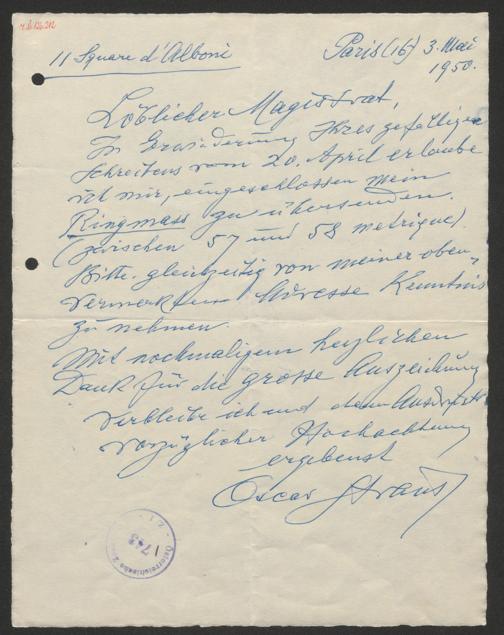 11 Square d'Alboni
Paris (16) 3. Mai
1950.
Löblicher Magistrat,
In Erwiderung Ihres gefälligen
Schreibens vom 20. April erlaube
ich mir, eingeschlossen mein
Ringmass zu übersenden.
(zwischen 57 und 58 metrique).
Bitte gleichzeitig von meiner oben
vermerkten Adresse Kenntnis
zu nehmen.
Mit nochmaligem herzlichen
Dank für die grosse Auszeichnung
verbleibe ich mit dem Ausdruck
vorzüglicher Hochachtung
ergebenst
Oscar Straus
743
Österreichische